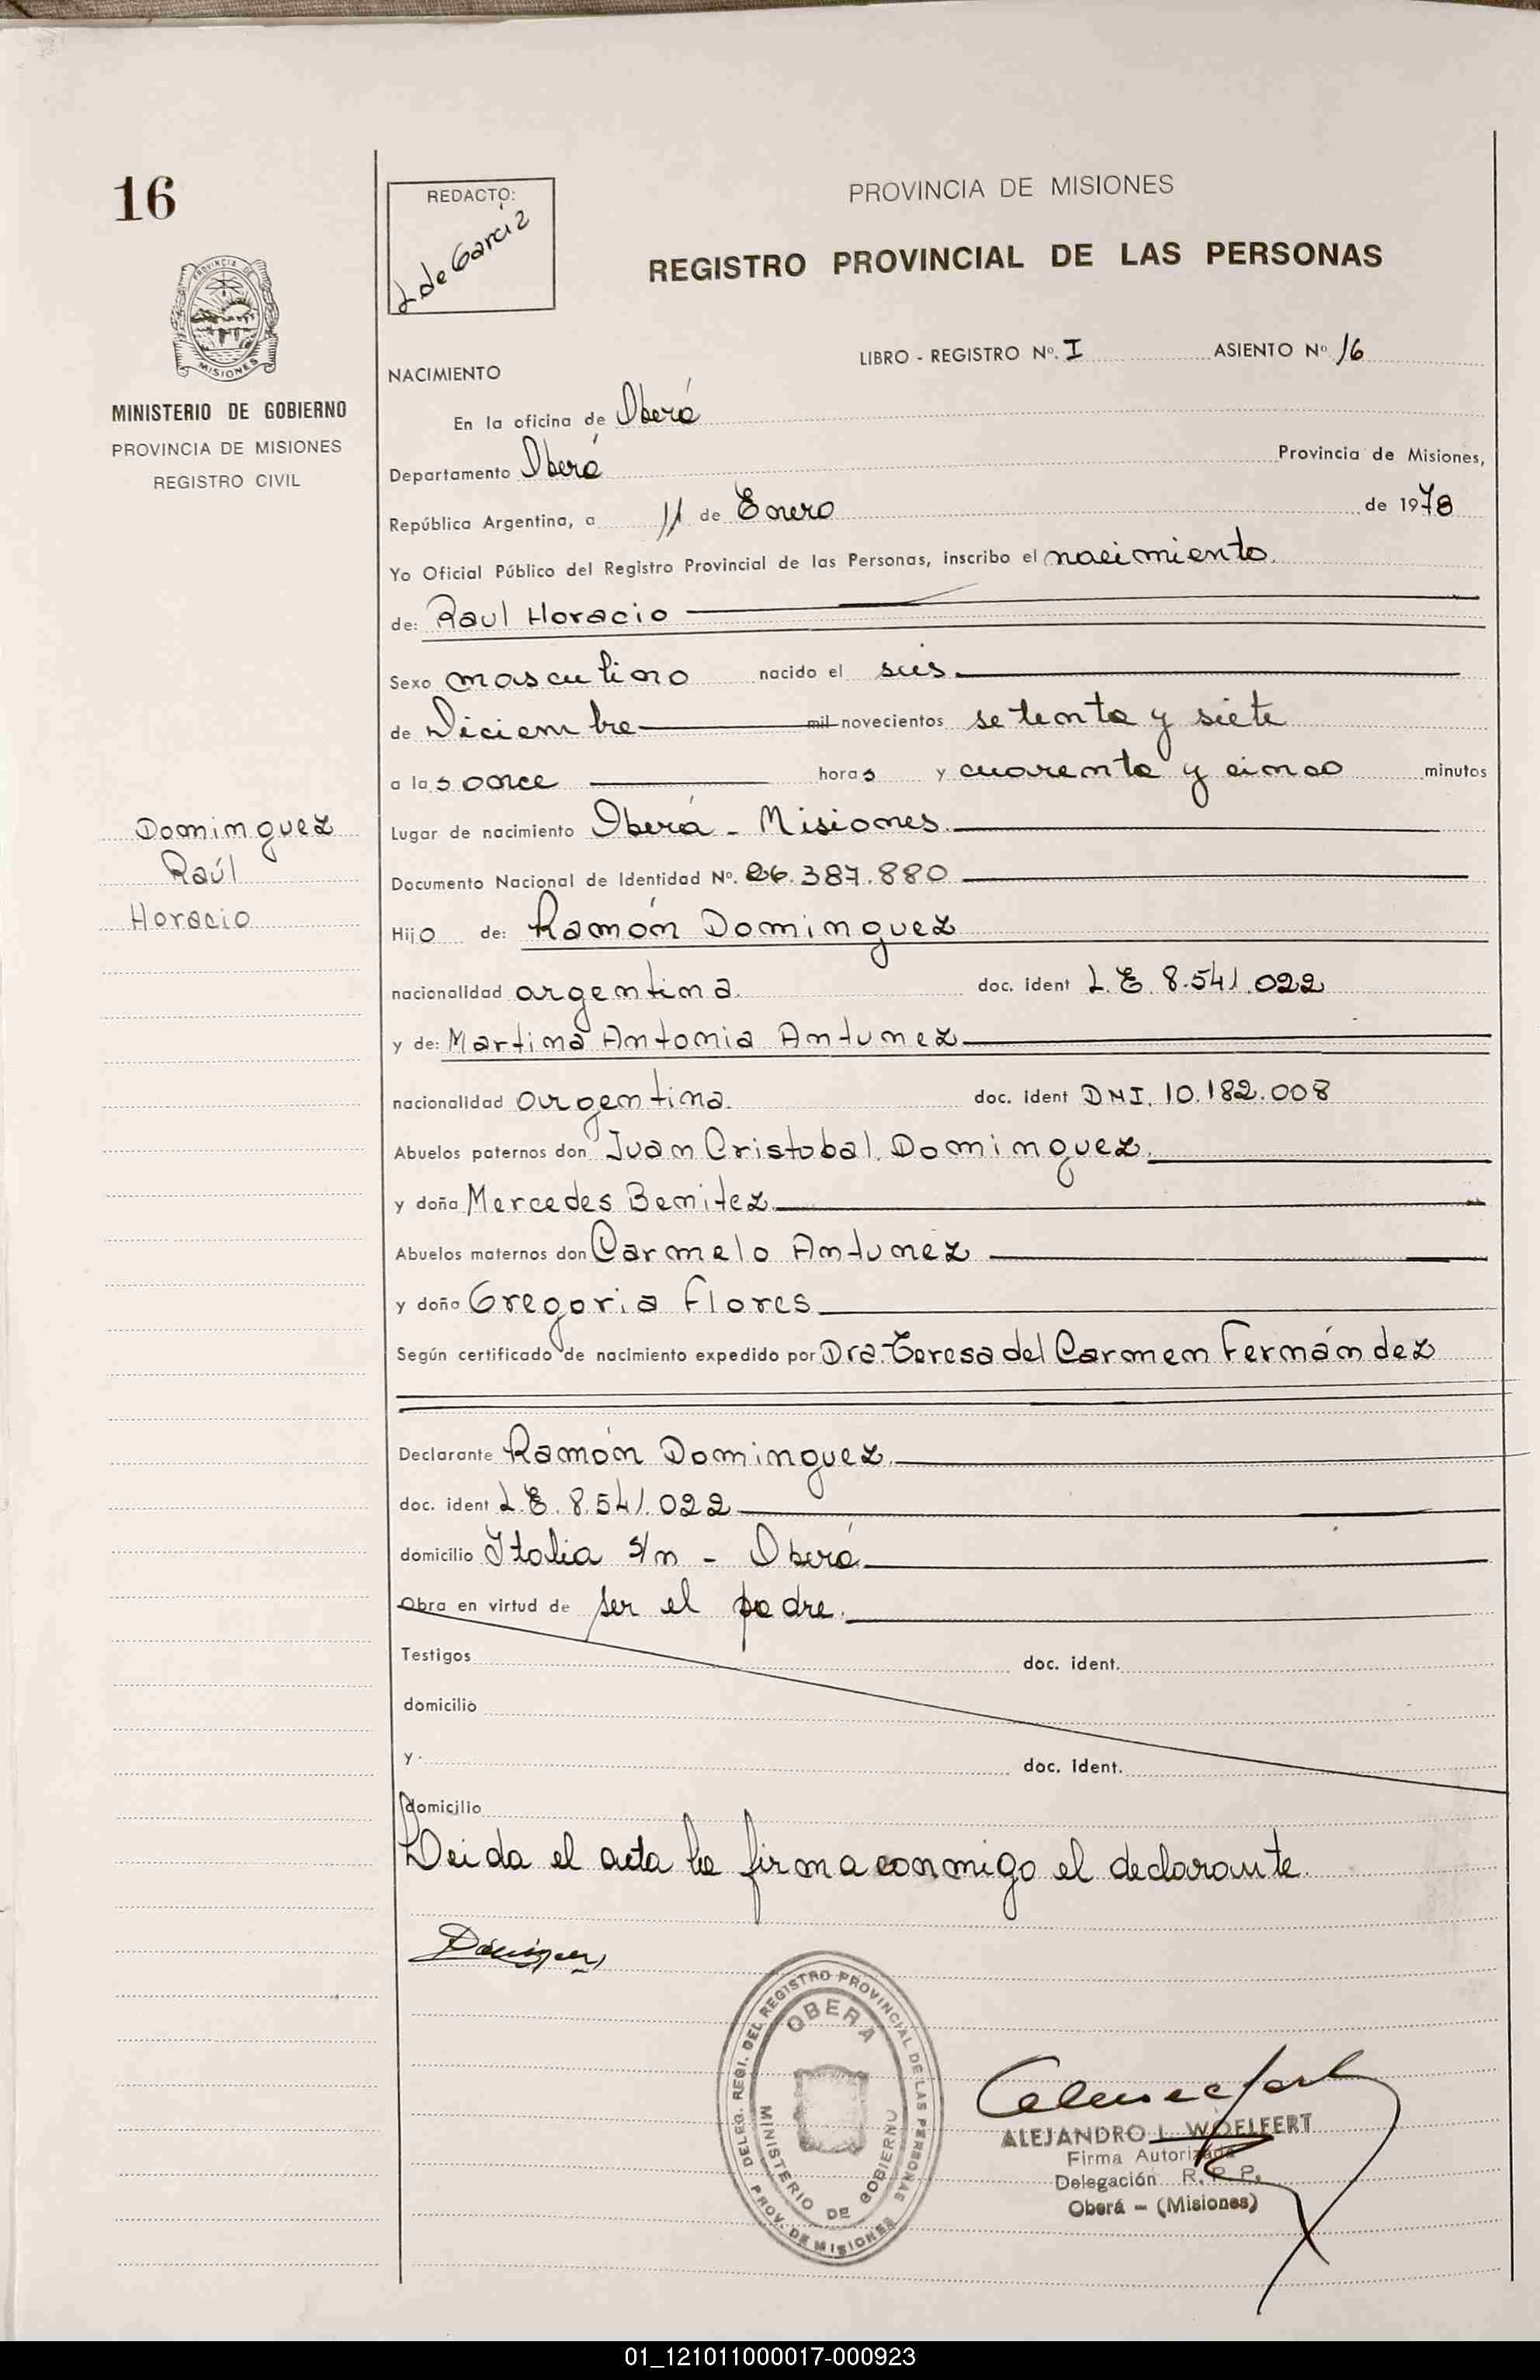 16
REDACTÓ:
L de Garcia
PROVINCIA DE MISIONES
REGISTRO PROVINCIAL DE LAS PERSONAS
PROVINCIA DE
MISIONES
MINISTERIO DE GOBIERNO
PROVINCIA DE MISIONES
REGISTRO CIVIL
LIBRO - REGISTRO Nº. I ASIENTO Nº 16
NACIMIENTO
En la oficina de Oberá
Departamento Oberá Provincia de Misiones,
República Argentina, a 11 de Enero de 1978
Yo Oficial Público del Registro Provincial de las Personas, inscribo el nacimiento
de: Raul Horacio
Sexo masculino nacido el seis
de Diciembre mil novecientos setenta y siete
a las once horas y cuarenta y cinco minutos
Lugar de nacimiento Oberá - Misiones
Documento Nacional de Identidad Nº. 26.387.880
Dominguez
Raúl
Horacio
Hijo de: Ramón Dominguez
nacionalidad argentina doc. ident L.E. 8.541.022
y de: Martina Antonia Antunez
nacionalidad argentina doc. ident DNI. 10.182.008
Abuelos paternos don Juan Cristobal Dominguez
y doña Mercedes Benitez
Abuelos maternos don Carmelo Antunez
y doña Gregoria Flores
Según certificado de nacimiento expedido por Dra. Teresa del Carmen Fernández
Declarante Ramón Dominguez
doc. ident L.E. 8.541.022
domicilio Italia s/n - Oberá
Obra en virtud de ser el padre.
Testigos doc. ident.
domicilio
y doc. ident.
domicilio
Leida el acta la firma conmigo el declarante.
DELEG. REGI. DEL REGISTRO PROVINCIAL DE LAS PERSONAS
OBERA
MINISTERIO DE GOBIERNO
PROV. DE MISIONES
ALEJANDRO L. WOELFERT
Firma Autorizada
Delegación R. P. P.
Oberá - (Misiones)
01_121011000017-000923